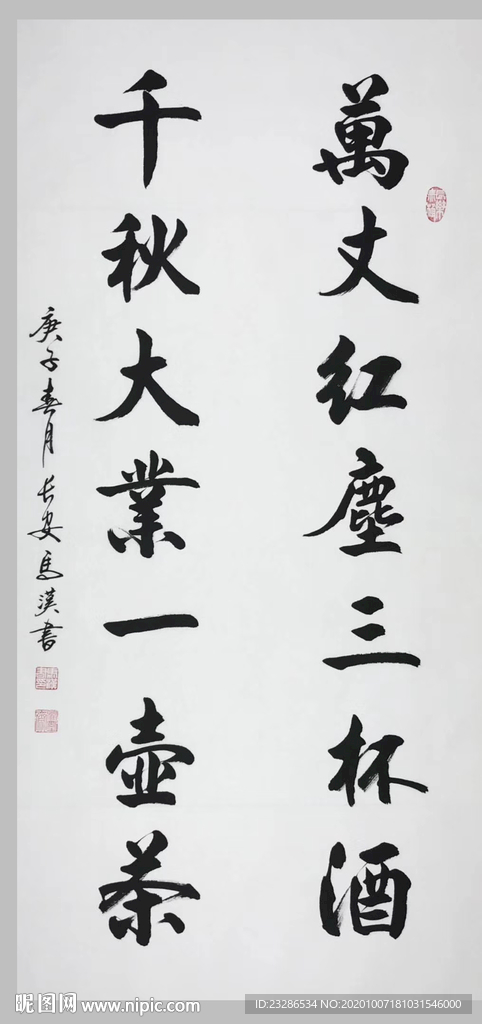 萬丈紅塵三杯酒
千秋大業一壺茶
庚子春月長安馬漢書
昵图网 www.nipic.com
ID:23286534 NO:20201007181031546000